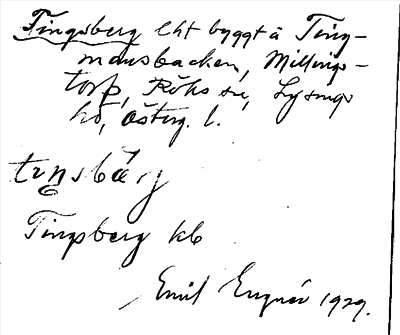 Tingsberg lht byggt å Ting-
mansbacken, Millings-
torp, Röks sn, Lysings
hd, Österg. l.
tıŋsbärj
Tingsberg kb
Emil 1929.